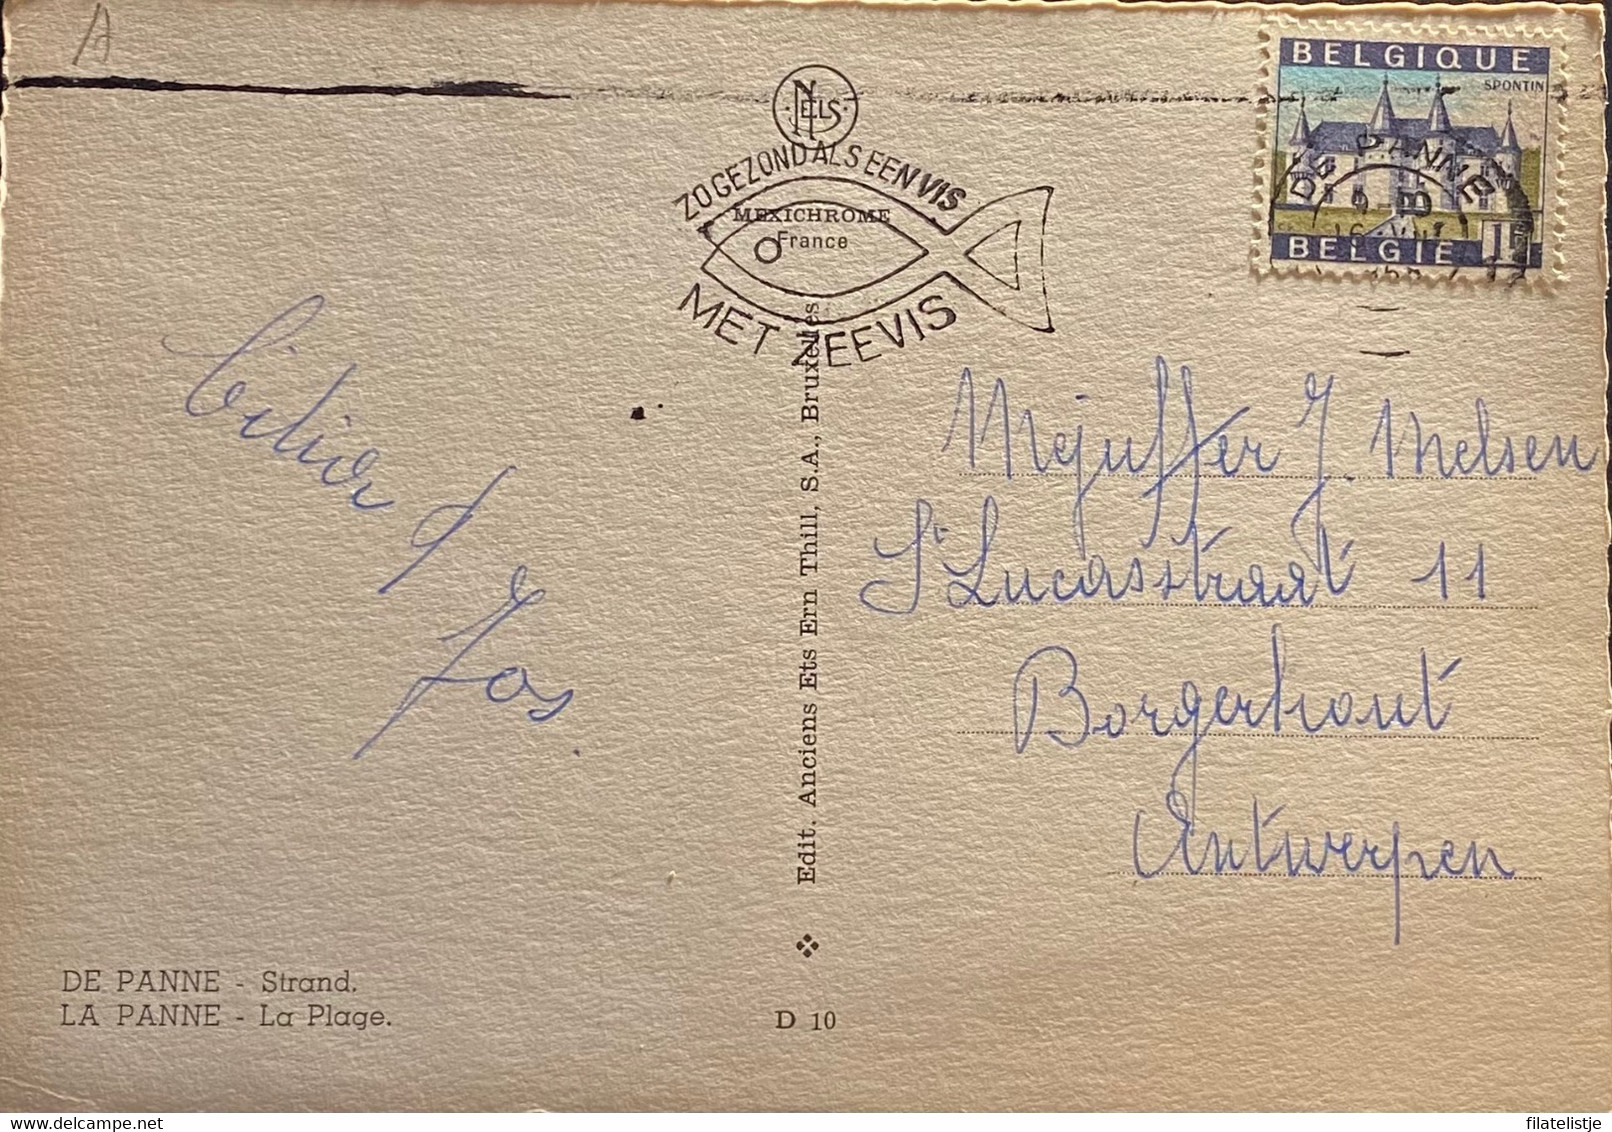 A
NELS
ZO GEZOND ALS EEN VIS
MEXICHROME
France
MET ZEEVIS
BELGIQUE
SPONTIN
DE PANNE
BELGIE 1F
Jos.
Mejuffer J. Melsen
St Lucasstraat 11
Borgerhout
Antwerpen
Edit. Anciens Ets Ern Thill, S.A., Bruxelles
DE PANNE - Strand.
LA PANNE - La Plage.
D 10
filatelistje